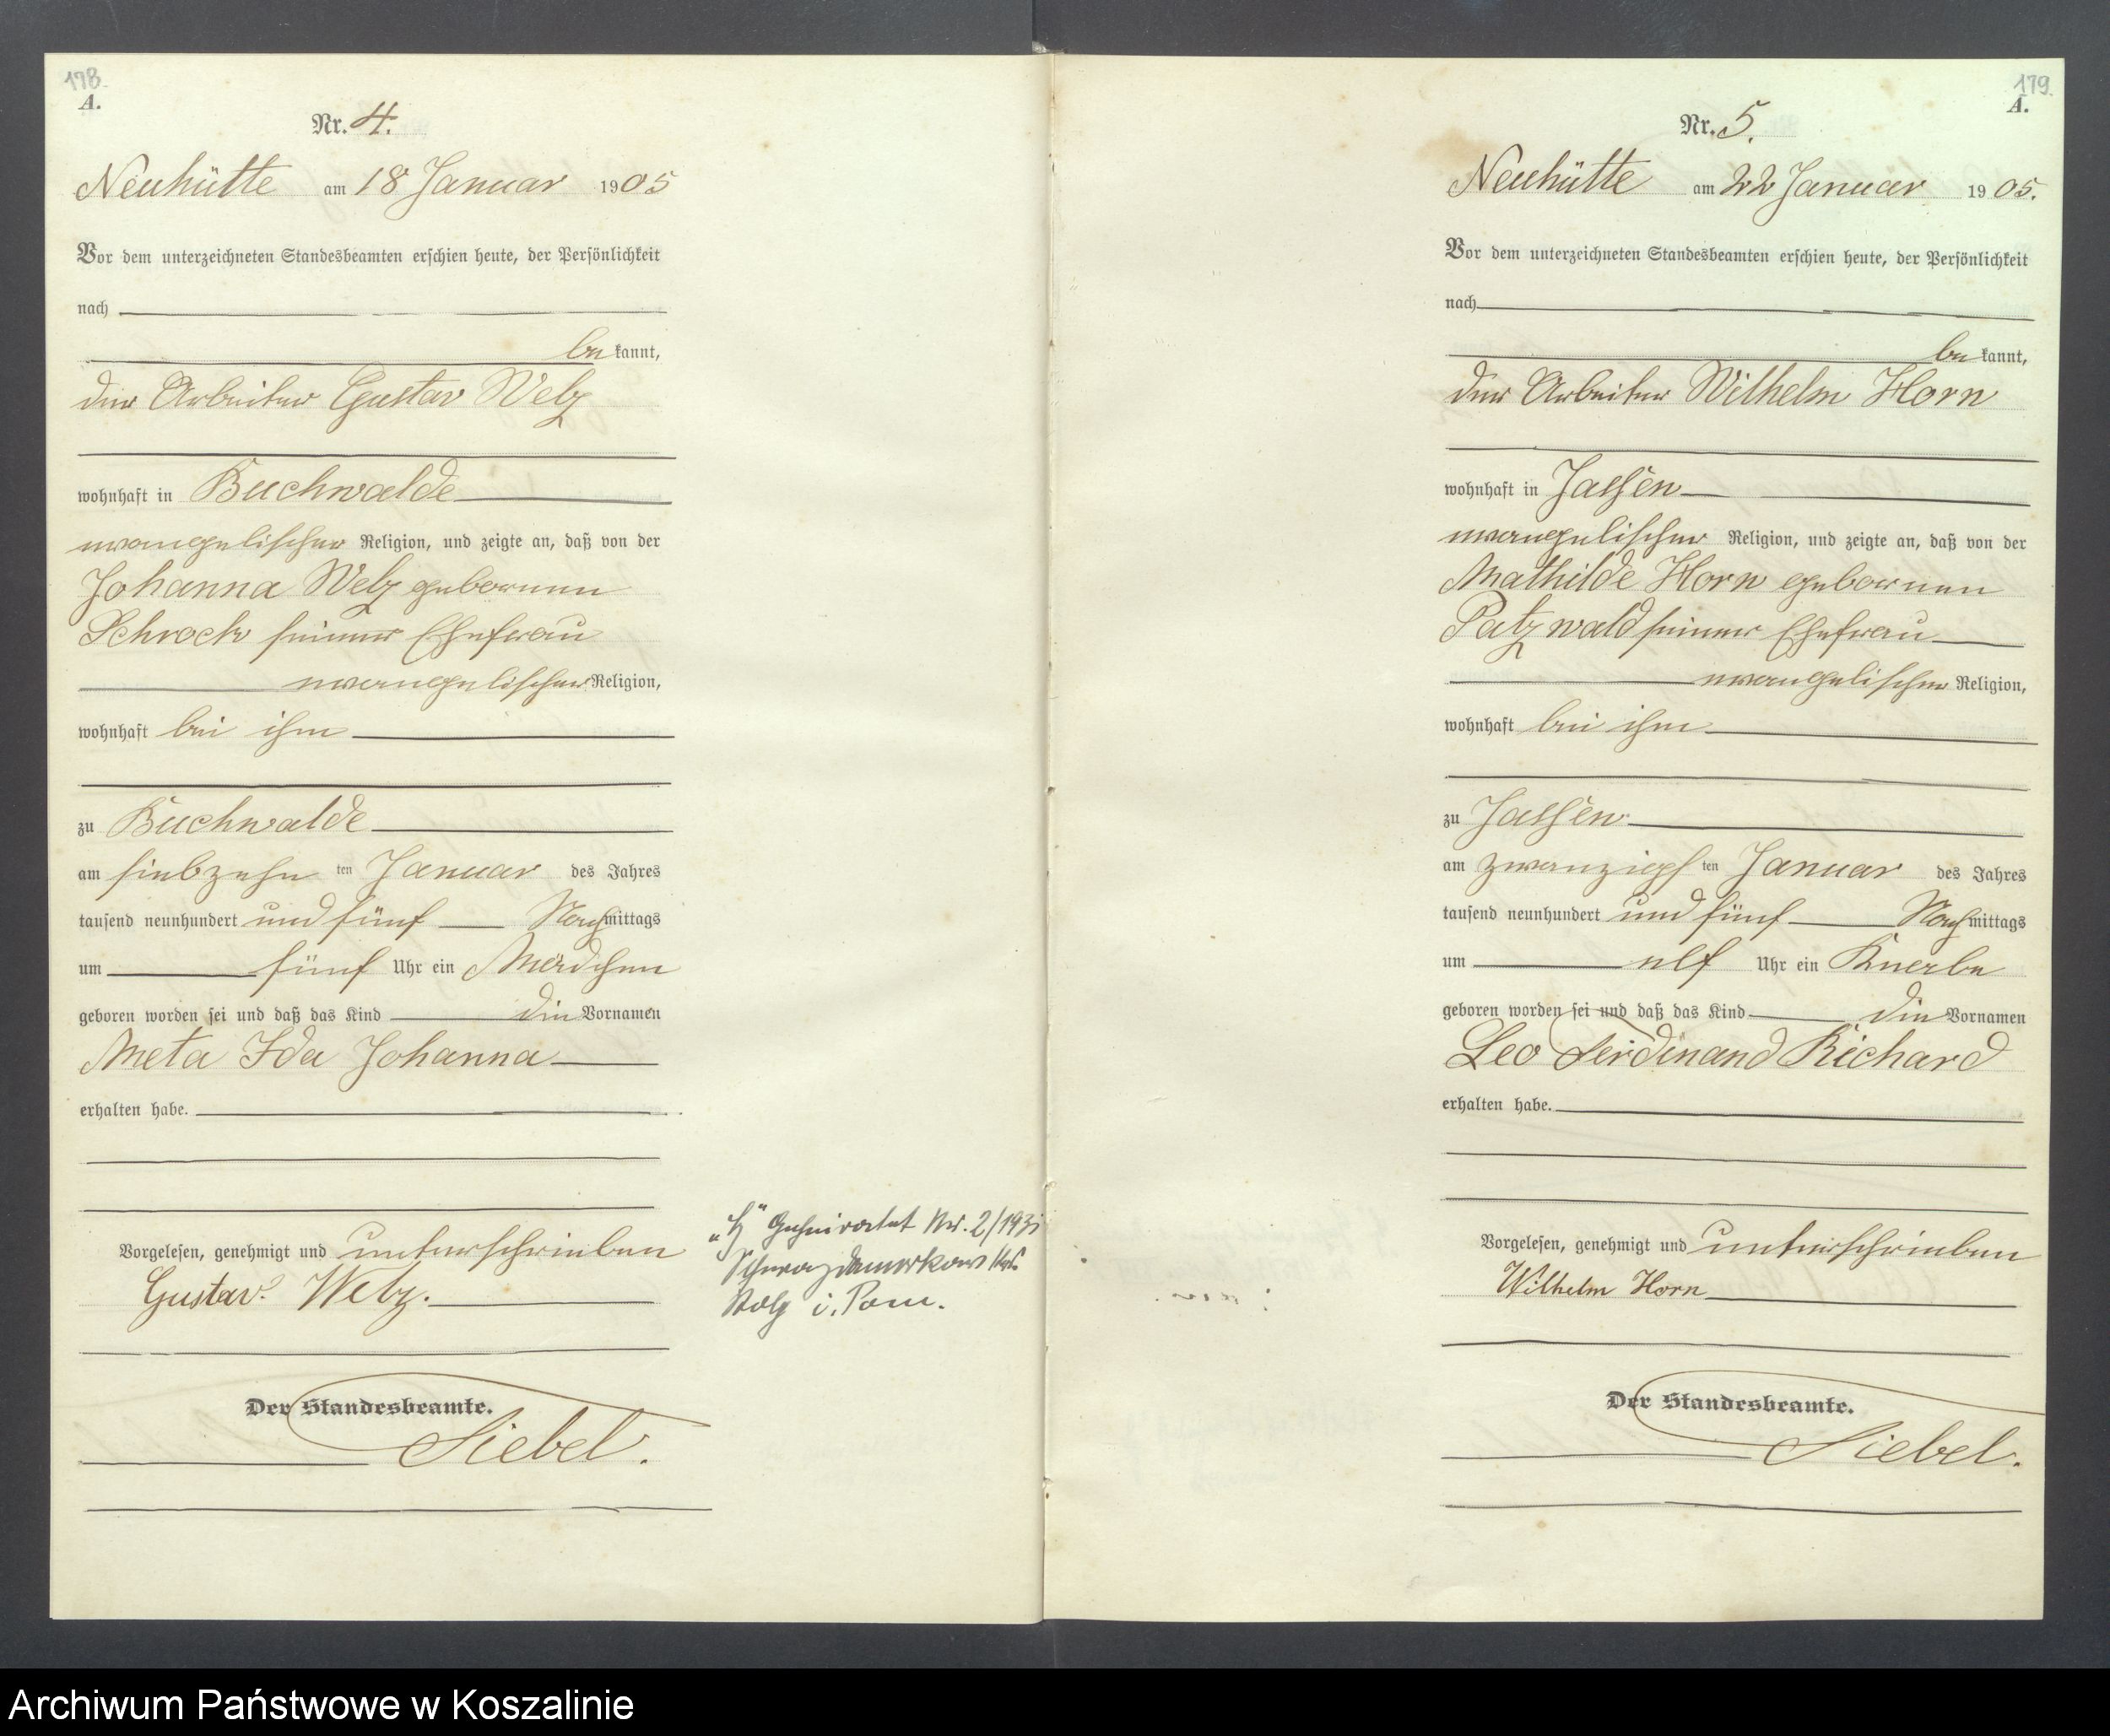 178.
A.
Nr. 4.
Neuhütte am 18 Januar 1905
Vor dem unterzeichneten Standesbeamten erschien heute, der Persönlichkeit
nach
be kannt,
der Arbeiter Gustav Welz
wohnhaft in Buchwalde
evangelischer Religion, und zeigte an, daß von der
Johanna Welz geborenen
Schrock seiner Ehefrau
evangelischer Religion,
wohnhaft bei ihm
zu Buchwalde
am siebzehn ten Januar des Jahres
tausend neunhundert und fünf Nachmittags
um fünf Uhr ein Mädchen
geboren worden sei und daß das Kind die Vornamen
Meta Ida Johanna
erhalten habe.
Vorgelesen, genehmigt und unterschrieben
Gustav Welz.
Der Standesbeamte.
Siebel.
Geheiratet Nr. 2/193
Stolp i. Pom.
179.
A.
Nr. 5.
Neuhütte am 22 Januar 1905.
Vor dem unterzeichneten Standesbeamten erschien heute, der Persönlichkeit
nach
be kannt,
der Arbeiter Wilhelm Horn
wohnhaft in Jassen
evangelischer Religion, und zeigte an, daß von der
Mathilde Horn geborenen
Patzwald seiner Ehefrau
evangelischer Religion,
wohnhaft bei ihm
zu Jassen
am zwanzigs ten Januar des Jahres
tausend neunhundert und fünf Nachmittags
um elf Uhr ein Knabe
geboren worden sei und daß das Kind die Vornamen
Leo Ferdinand Richard
erhalten habe.
Vorgelesen, genehmigt und unterschrieben
Wilhelm Horn
Der Standesbeamte.
Siebel.
Archiwum Państwowe w Koszalinie